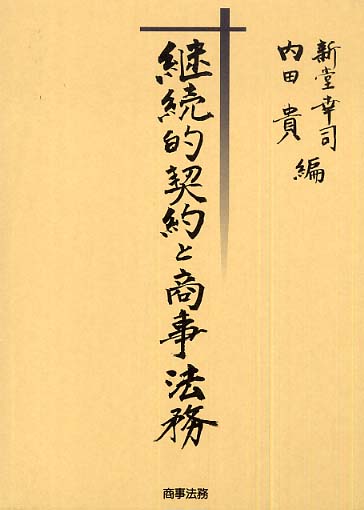 新堂幸司
内田貴編
継続的契約と商事法務
商事法務